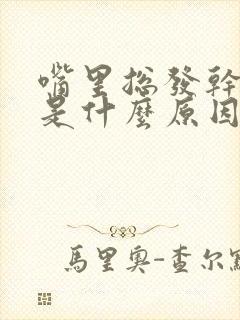 嘴里總發幹
是什麼原因
馬里奧-查尔